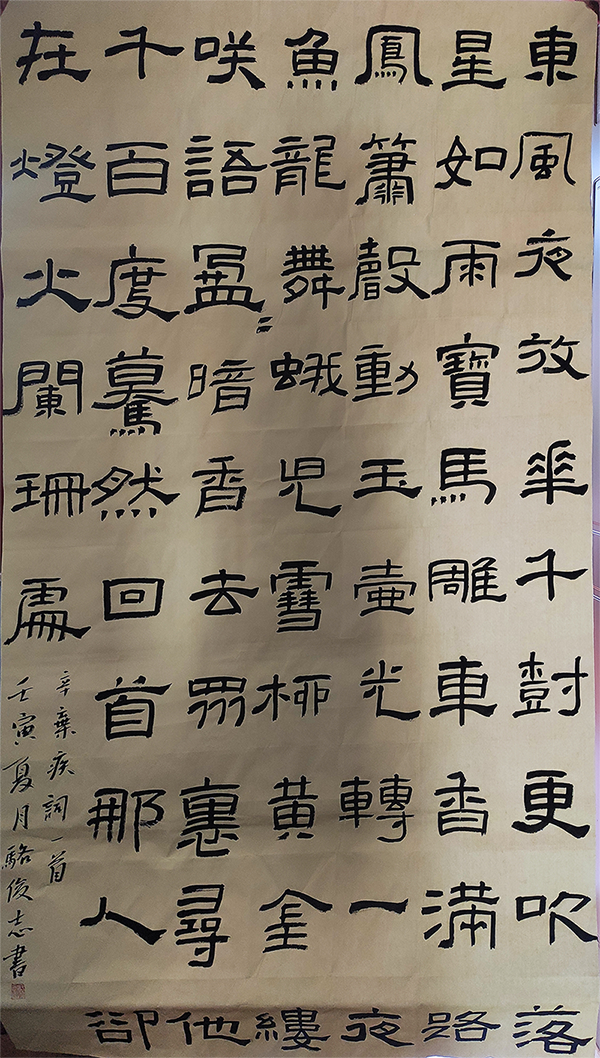 東風夜放華千樹更吹落
星如雨寶馬雕車香滿路
鳳簫聲動玉壺光轉一夜
魚龍舞蛾兒雪柳黃金縷
咲語盈〻暗香去眾裏尋他
千百度驀然回首那人卻
在燈火闌珊處
辛棄疾詞一首
壬寅夏月駱俊志書